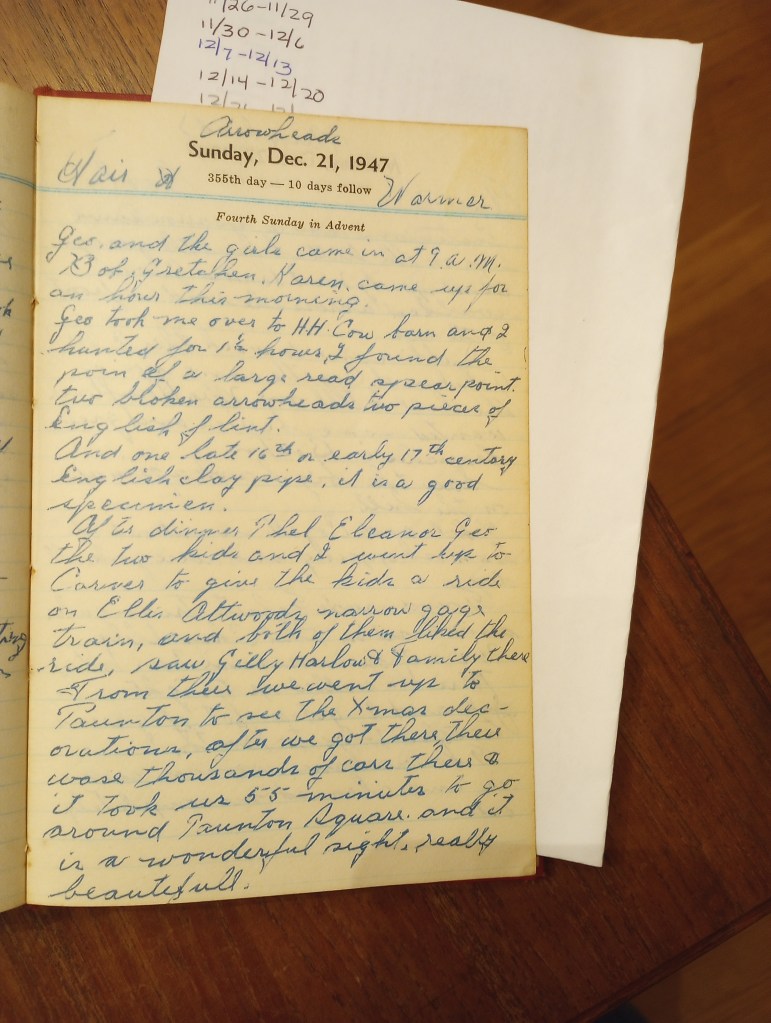 11/26-11/29
11/30-12/6
12/7-12/13
12/14-12/20
Arrowheads
Sunday, Dec. 21, 1947
355th day — 10 days follow
Warmer
Fourth Sunday in Advent
Geo. and the girls came in at 9 a.m.
Bob, Gretchen, Karen, came up for
an hour this morning.
Geo took me over to H.H. Cow barn and I
hunted for 1½ hours, I found the
poin of a large read spear point.
two bloken arrowheads two pieces of
English flint.
And one late 16th or early 17th century
English clay pipe, it is a good
specimen.
After dinner Phel Eleanor Geo
the two kids and I went up to
Carver to give the kids a ride
on Ellis Attwoods narrow gage
train, and both of them liked the
ride, saw Gilly Harlow & Family there
From their we went up to
Taunton to see the Xmas dec-
orations, after we got there, their
wase thousands of cars there &
it took us 55 minutes to go
around Taunton Square. and it
is a wonderful sight, really
beautifull.